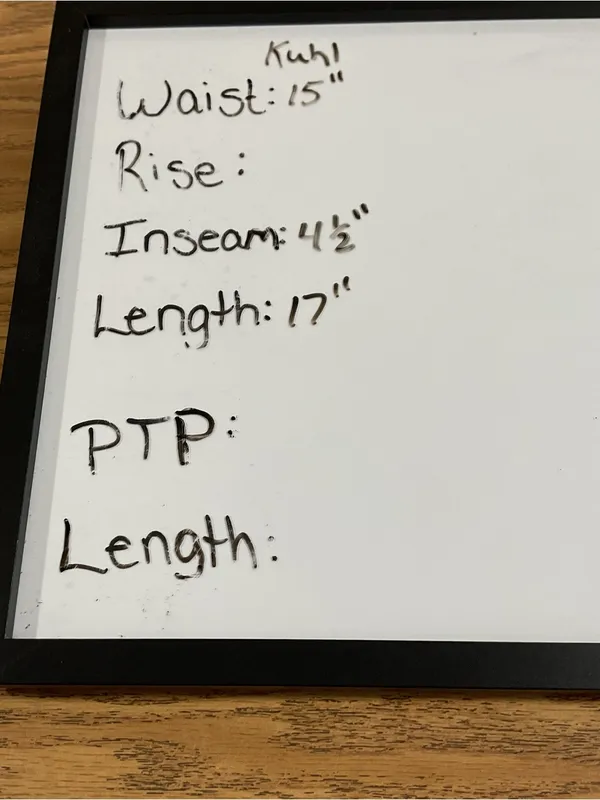 Kuhl
Waist: 15"
Rise:
Inseam: 4 1/2"
Length: 17"
PTP:
Length: